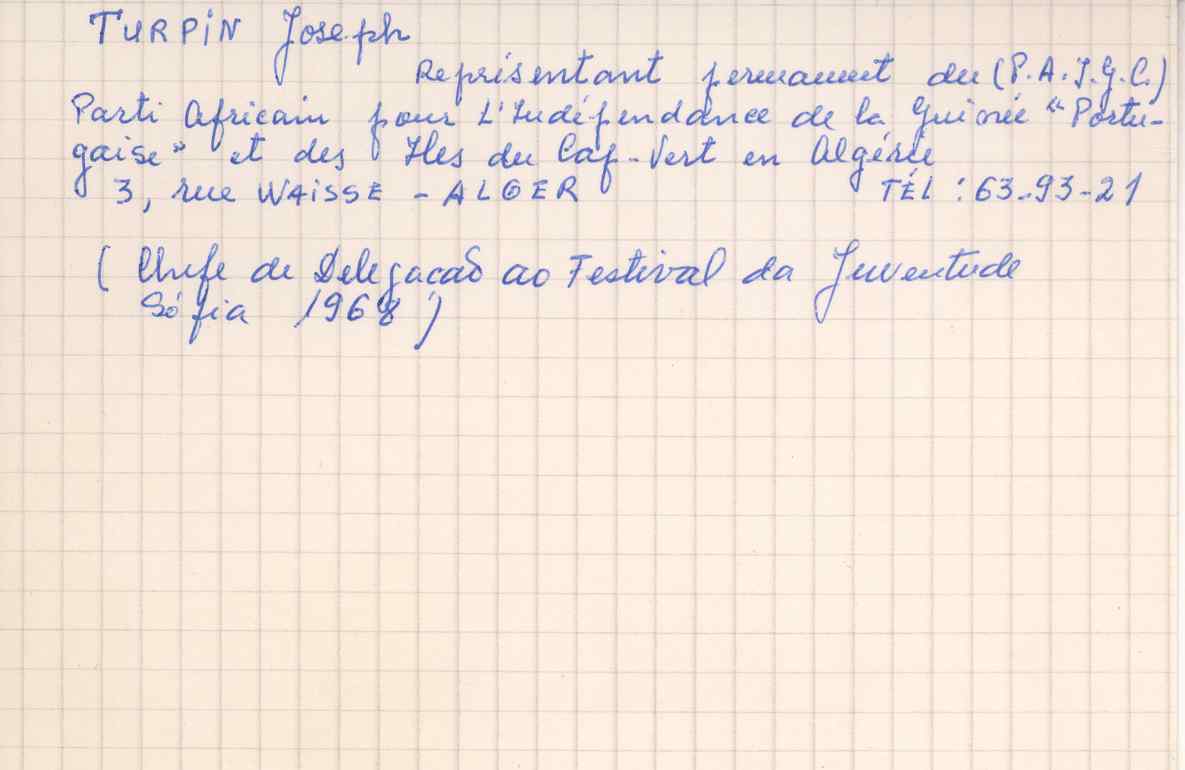 TURPIN Joseph
Représentant permanent du (P.A.I.G.C.)
Parti Africain pour L'Indépendance de la Guinée "Portu-
gaise" et des Iles du Cap-Vert en Algérie
3, rue WAISSE - ALGER TÉL : 63-93-21
( Chefe de Delegacaõ ao Festival da Juventude
Sófia 1968 )